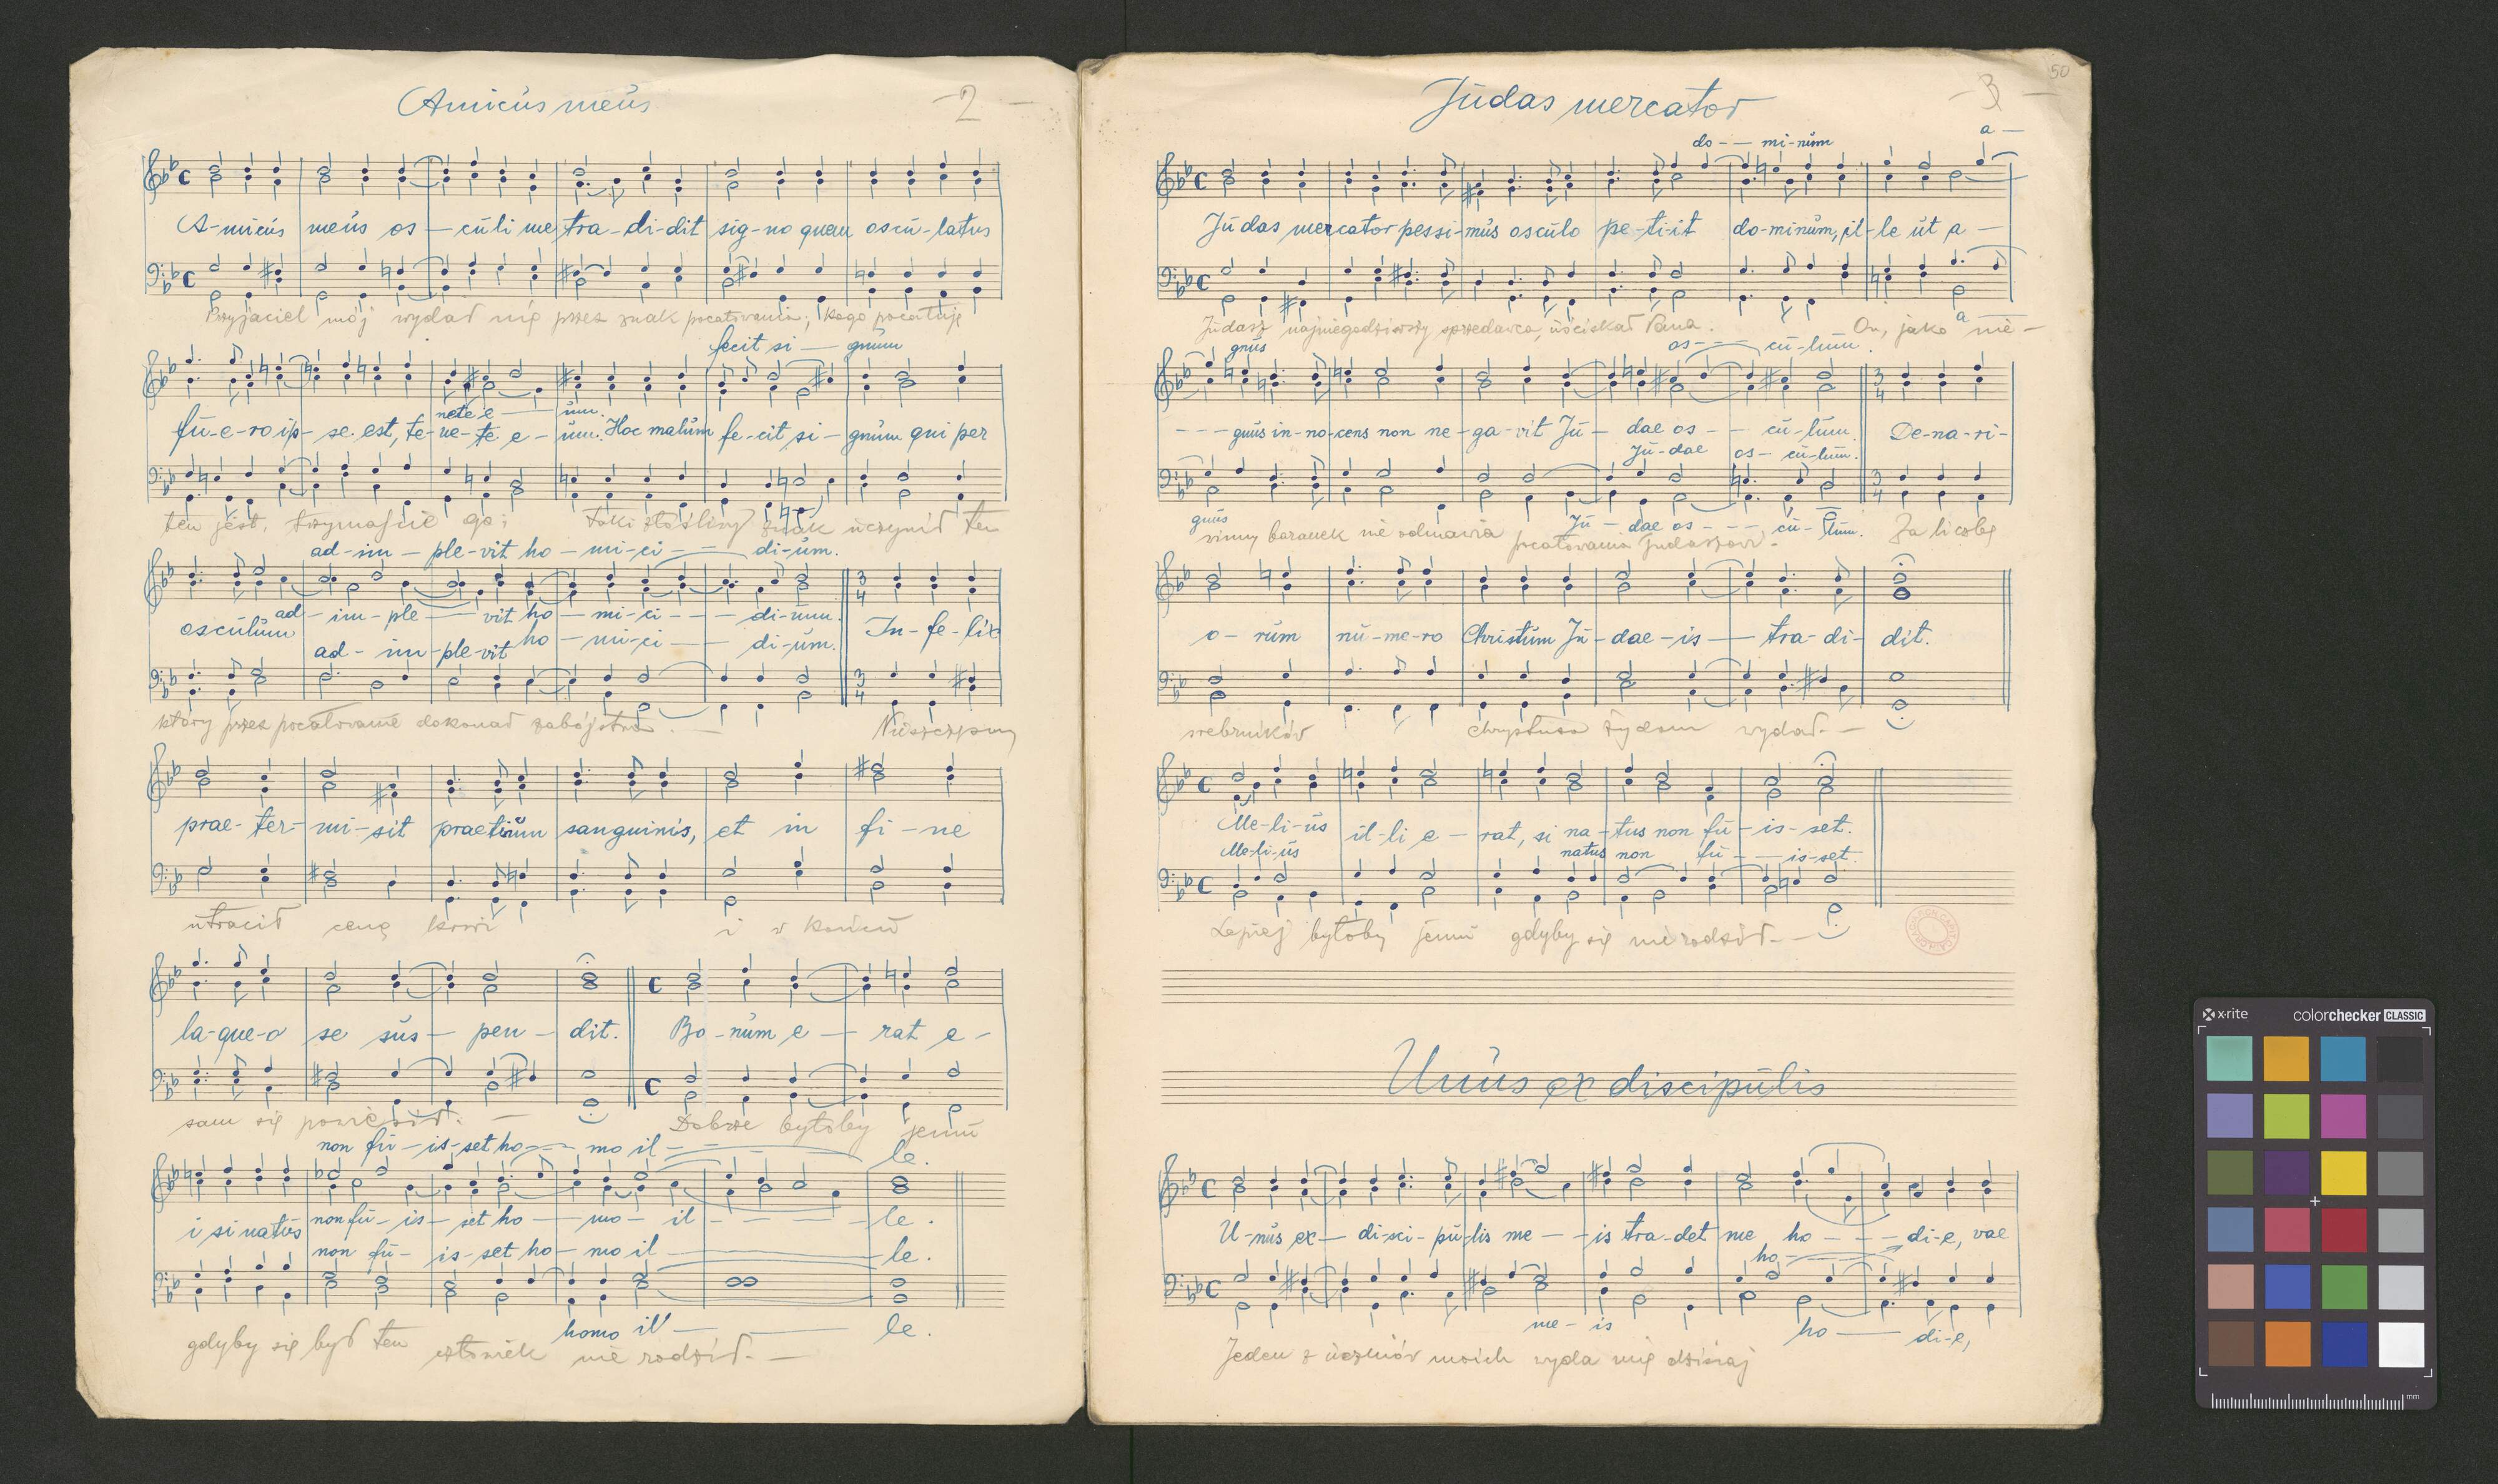 Amicus meus
- 2 -
A-micus meus os - culi me tra-di-dit sig-no quem oscu-latus
Przyjaciel mój wydał mię przez znak pocałowania; kogo pocałuję
fecit si - gnum
nete e - um.
fu-e-ro ip-se est, te-ne-te e-um. Hoc malum fe-cit si-gnum qui per
ten jest, trzymajcie go; Taki złośliwy znak uczynił ten
ad-im-ple-vit ho-mi-ci - - di-um.
ad-im-ple - vit ho-mi-ci - - - di-um.
osculum In-fe-lix
ad-im-ple-vit ho-mi-ci - - di-um.
który przez pocałowanie dokonał zabójstwa. - Nieszczęsny
prae-ter-mi-sit praetium sanguinis, et in fi-ne
utracił cenę krwi i w końcu
la-que-o se sus-pen-dit. Bo-num e-rat e-
sam się powiesił. - Dobrze byłoby jemu
non fu-is-set ho - - mo il - - - le.
i si natus non fu-is-set ho - mo - il - - - - le.
non fu-is-set ho-mo il - le.
homo il - - le.
gdyby się był ten człowiek nie rodził. -
Judas mercator
- 3 -
50
do - - mi-num a -
Judas mercator pessi-mus osculo pe-ti-it do-minum, il-le ut a -
a
Judasz najniegodziwszy sprzedawca, uściskał Pana. On, jako nie-
gnus os - - - cu-lum.
- - - gnus in-no-cens non ne-ga-vit Ju-dae os - - cu-lum. De-na-ri-
Ju-dae os-cu-lum.
gnus Ju-dae os - - - cu-lum.
winny baranek nie odmawia pocałowania Judaszowi. Za liczbę
o-rum nu-me-ro Christum Ju-dae-is - tra-di-dit.
srebrników Chrystusa żydom wydał. -
Me-li-us il-li e-rat, si na-tus non fu-is-set.
Me-li-us natus non fu - - is-set.
Lepiej byłoby jemu gdyby się nie rodził. -
Unus ex discipulis
U-nus ex - di-sci-pu-lis me - -is tra-det me ho - - - di-e, vae
ho -
me-is ho - di-e,
Jeden z uczniów moich wyda mię dzisiaj
x-rite colorchecker CLASSIC
mm